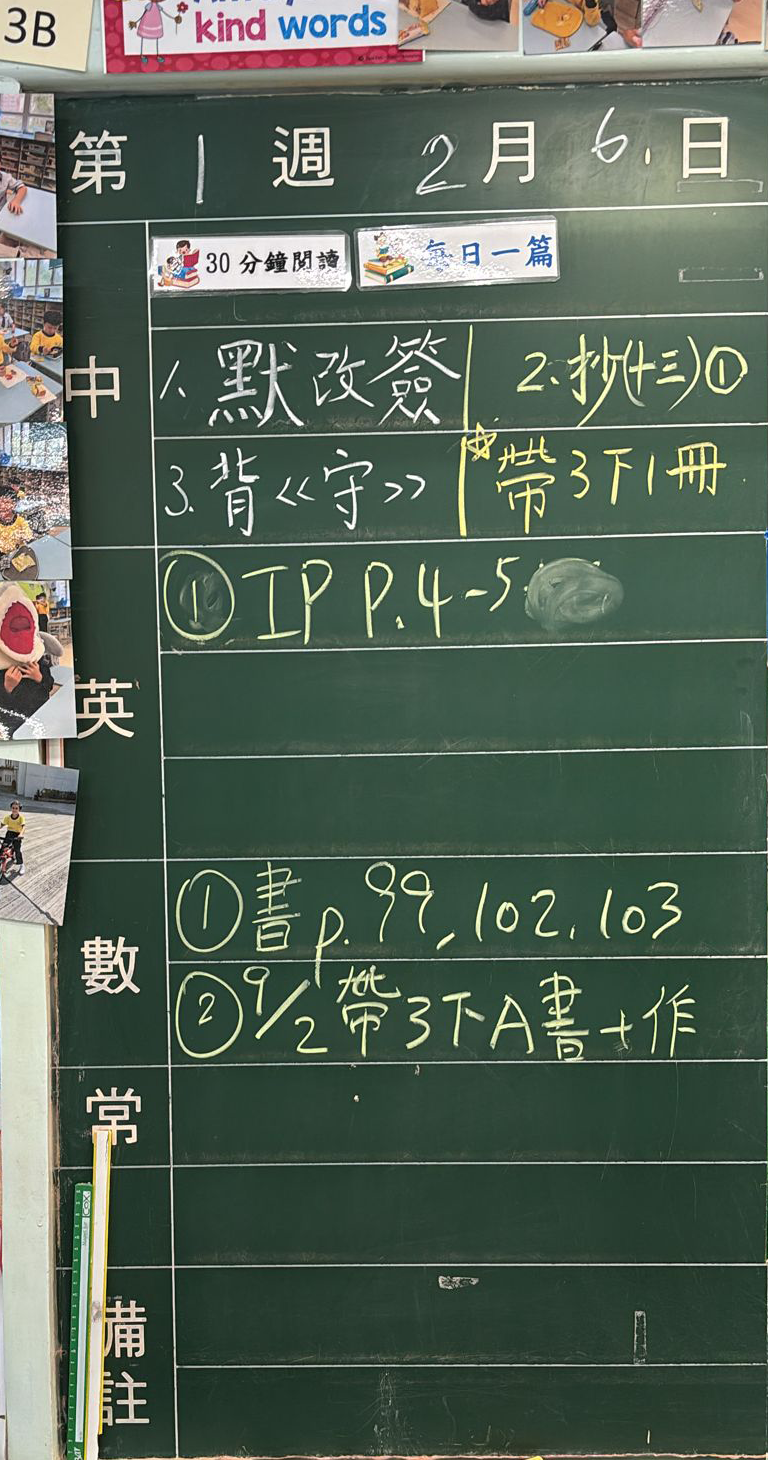 3B
kind words
第 1 週 2 月 6. 日
30分鐘閱讀 每日一篇
中
1. 默改簽 2. 抄(十三)①
3. 背<<守>> 帶3下1冊
英
① IP P.4-5
數
① 書 p.99, 102, 103
② 9/2 帶3下A書+作
常
備註